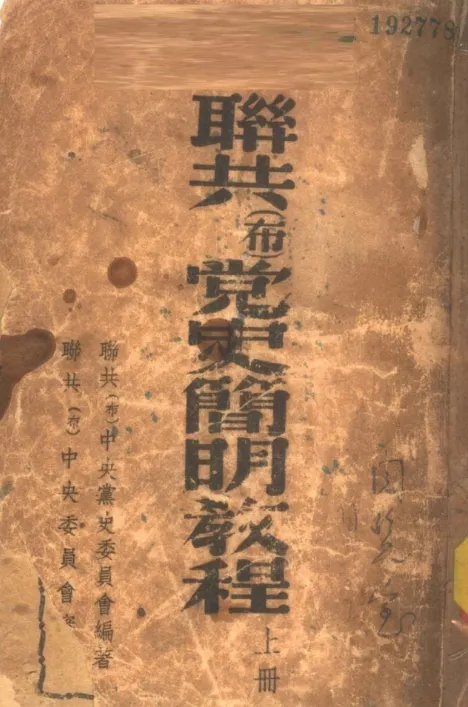 192778
聯共(布)党史簡明教程
上冊
聯共(布)中央黨史委員會編著
聯共(布)中央委員會